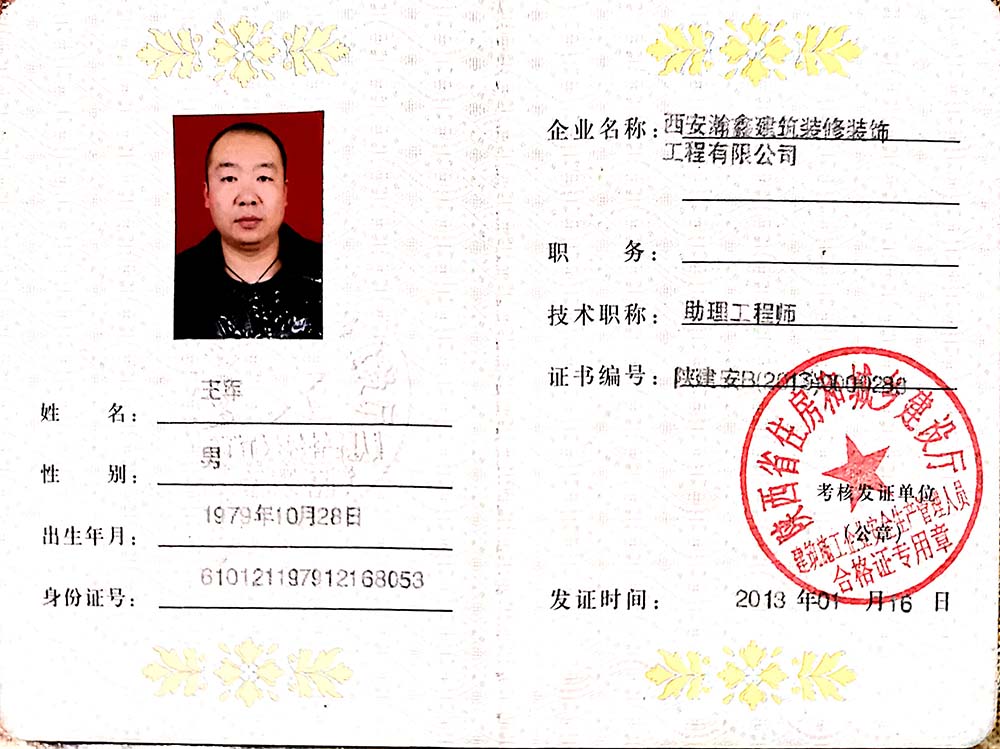 姓 名：王军
性 别：男
出生年月：1979年10月28日
身份证号：610121197912168053
企业名称：西安瀚鑫建筑装修装饰
工程有限公司
职 务：
技术职称：助理工程师
证书编号：陕建安B(2013)0000280
陕西省住房和城乡建设厅
考核发证单位
（公章）
建筑施工企业安全生产管理人员
合格证专用章
发证时间：2013 年01 月16 日